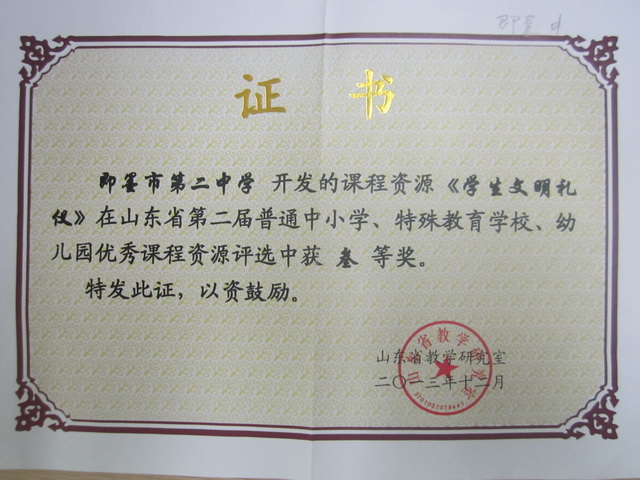 即墨
证书
即墨市第二中学 开发的课程资源《学生文明礼
仪》在山东省第二届普通中小学、特殊教育学校、幼
儿园优秀课程资源评选中获 叁 等奖。
特发此证，以资鼓励。
山东省教学研究室
二〇一三年十二月
山东省教学研究室